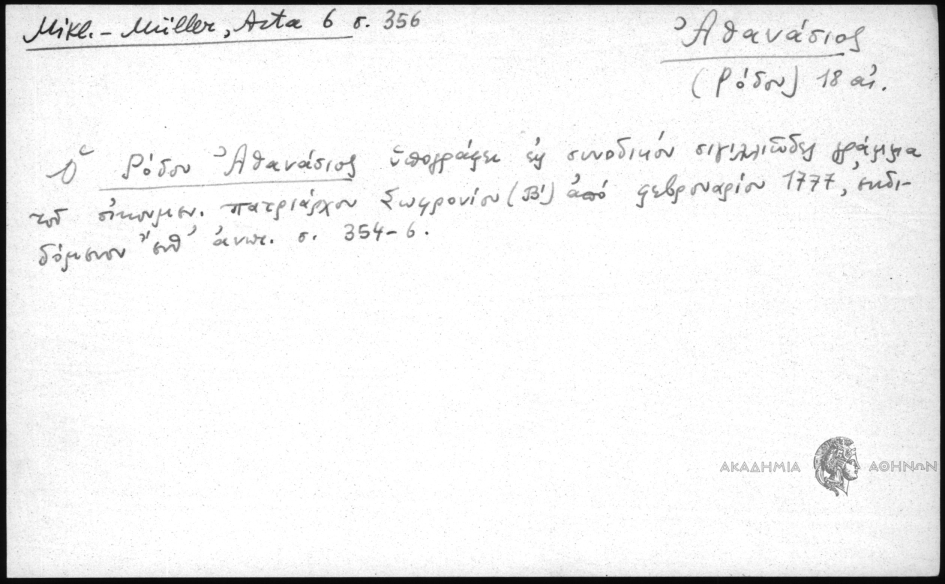 Mikl. - Müller, Acta 6 σ. 356
Ἀθανάσιος
(Ρόδου) 18 αἰ.
Ὁ Ρόδου Ἀθανάσιος ὑπογράφει εἰς συνοδικόν σιγιλλιῶδες γράμμα
τοῦ οἰκουμεν. πατριάρχου Σωφρονίου (Β') ἀπό φεβρουαρίου 1777, ἐκδι-
δόμενον ἔνθ' ἀνωτ. σ. 354-6.
ΑΚΑΔΗΜΙΑ ΑΘΗΝΩΝ